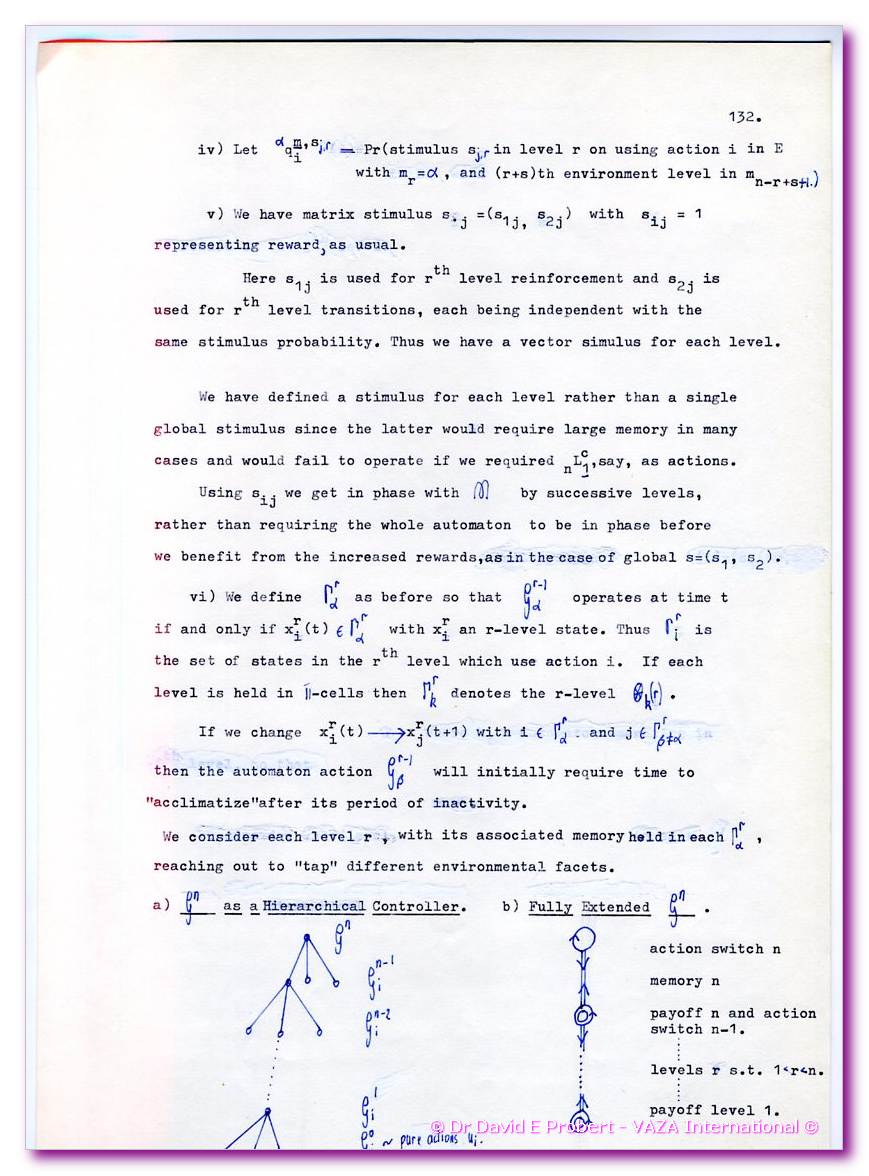 132.
iv) Let αq_i^{m,s_{j,r}} = Pr(stimulus s_{j,r} in level r on using action i in E
with m_r=α, and (r+s)th environment level in m_{n-r+s+1}.)
v) We have matrix stimulus s_{.j} =(s_{1j}, s_{2j}) with s_{ij} = 1
representing reward, as usual.
Here s_{1j} is used for r^{th} level reinforcement and s_{2j} is
used for r^{th} level transitions, each being independent with the
same stimulus probability. Thus we have a vector simulus for each level.
We have defined a stimulus for each level rather than a single
global stimulus since the latter would require large memory in many
cases and would fail to operate if we required _nL_1^c, say, as actions.
Using s_{ij} we get in phase with M by successive levels,
rather than requiring the whole automaton to be in phase before
we benefit from the increased rewards, as in the case of global s=(s_1, s_2).
vi) We define Γ_α^r as before so that 𝒢_α^{r-1} operates at time t
if and only if x_i^r(t) ϵ Γ_α^r with x_i^r an r-level state. Thus Γ_i^r is
the set of states in the r^{th} level which use action i. If each
level is held in Π-cells then Γ_k^r denotes the r-level ⊗_k(r).
If we change x_i^r(t) ⟶ x_j^r(t+1) with i ϵ Γ_α^r . and j ϵ Γ_{β≠α}^r
then the automaton action 𝒢_β^{r-1} will initially require time to
"acclimatize"after its period of inactivity.
We consider each level r , with its associated memory held in each Γ_α^r ,
reaching out to "tap" different environmental facets.
a) 𝒢^n as a Hierarchical Controller. b) Fully Extended 𝒢^n .
𝒢^n
action switch n
𝒢_i^{n-1}
memory n
𝒢_i^{n-2}
payoff n and action
switch n-1.
levels r s.t. 1<r<n.
𝒢_i^1
payoff level 1.
© Dr David E Probert - VAZA International ©
~ pure actions u_i.